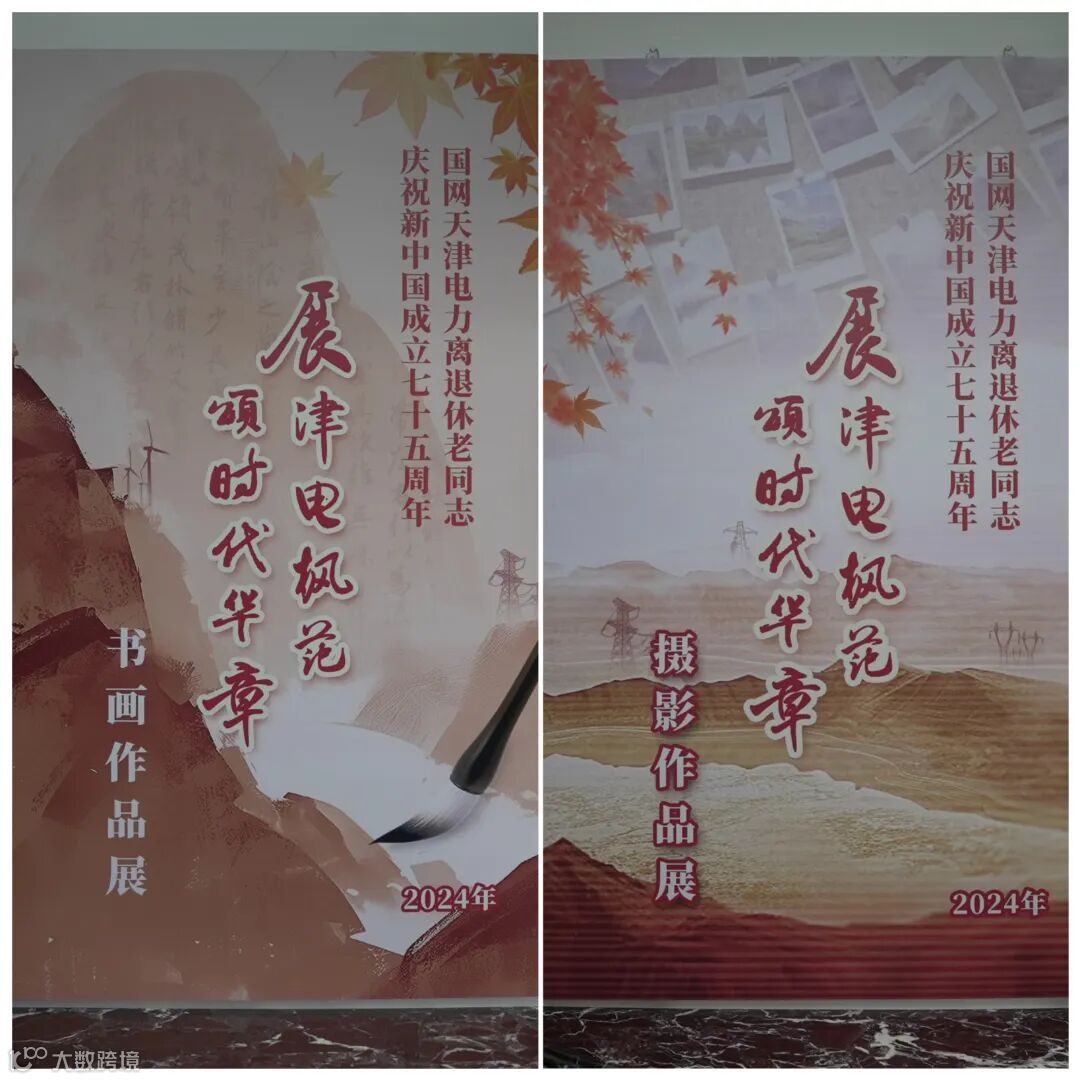 国网天津电力离退休老同志
庆祝新中国成立七十五周年
展津电枫范
颂时代华章
书画作品展
2024年
国网天津电力离退休老同志
庆祝新中国成立七十五周年
展津电枫范
颂时代华章
摄影作品展
2024年
大数跨境